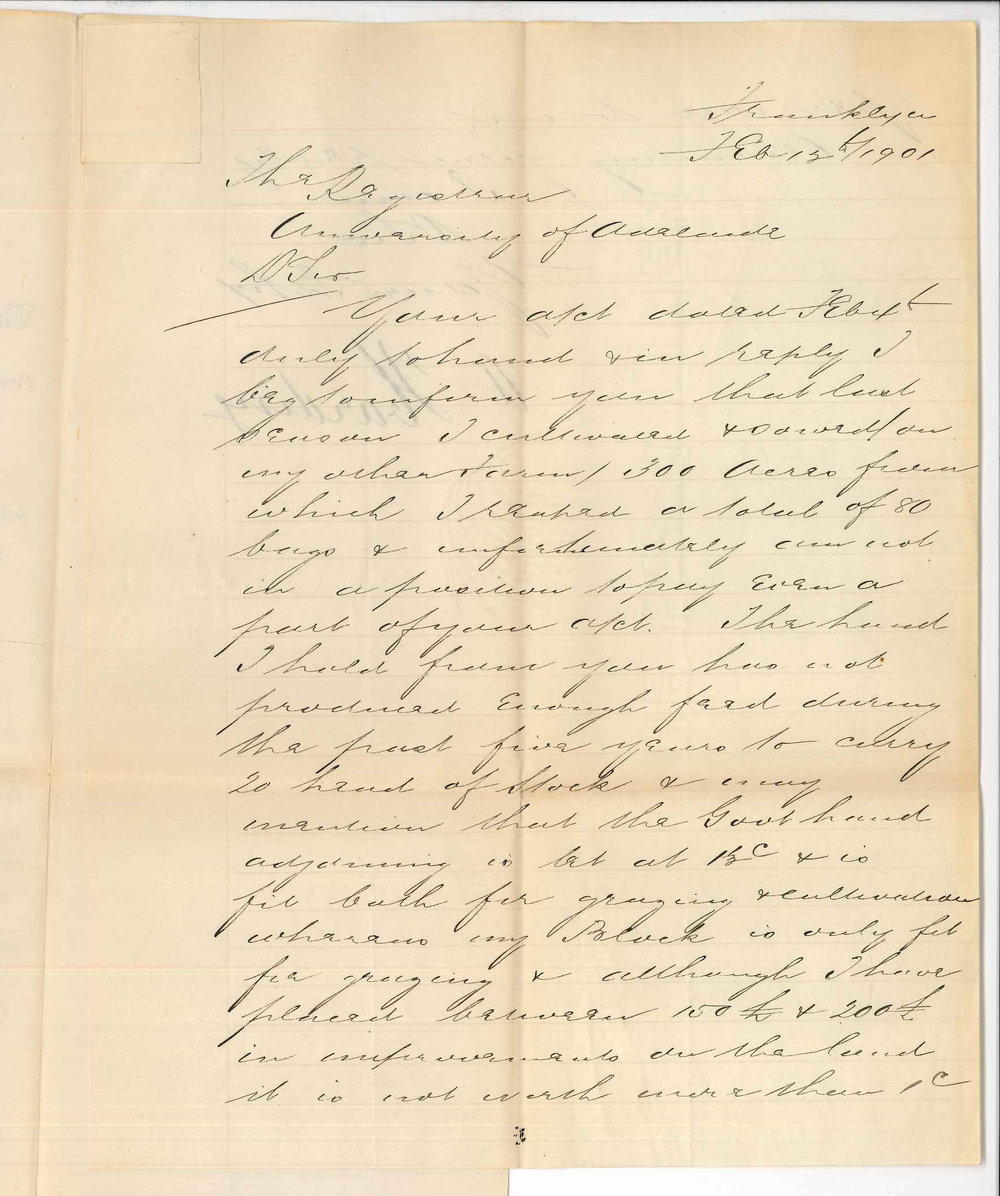 Franklyn
Feb 13th/1901
The Registrar
University of Adelaide
D Sir
Your a/ct dated Feb
duly to hand & in reply I
beg to inform you that last
season I cultivated & sowed (on
my other Farm) 300 Acres from
which I reaped a total of 80
bags & unfortunately am not
in a position to pay even a
part of your a/ct. The land
I hold from you has not
produced enough feed during
the past five years to carry
20 head of Stock & may
mention that the Govt land
adjoining is let at & is
fit both for grazing & cultivation
whereas my Block is only fit
for grazing & although I have
placed between 150£ & 200£
in improvements on the land
it is not worth more than 1c